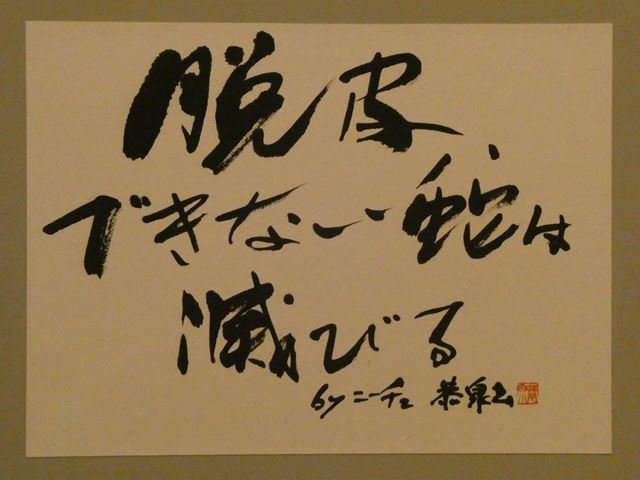 脱皮
できない蛇は
滅びる
by ニーチェ 恭泉